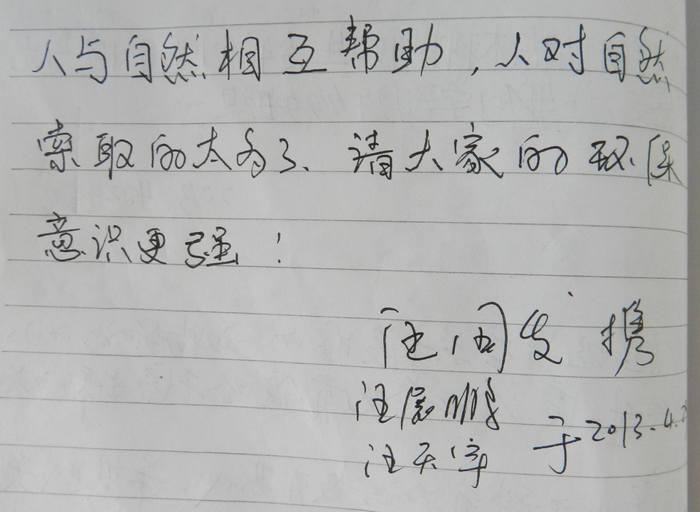 人与自然相互帮助，人对自然
索取的太多了、请大家的环保
意识更强！
汪国发 携
汪展鹏
汪天宇 于2013.4.